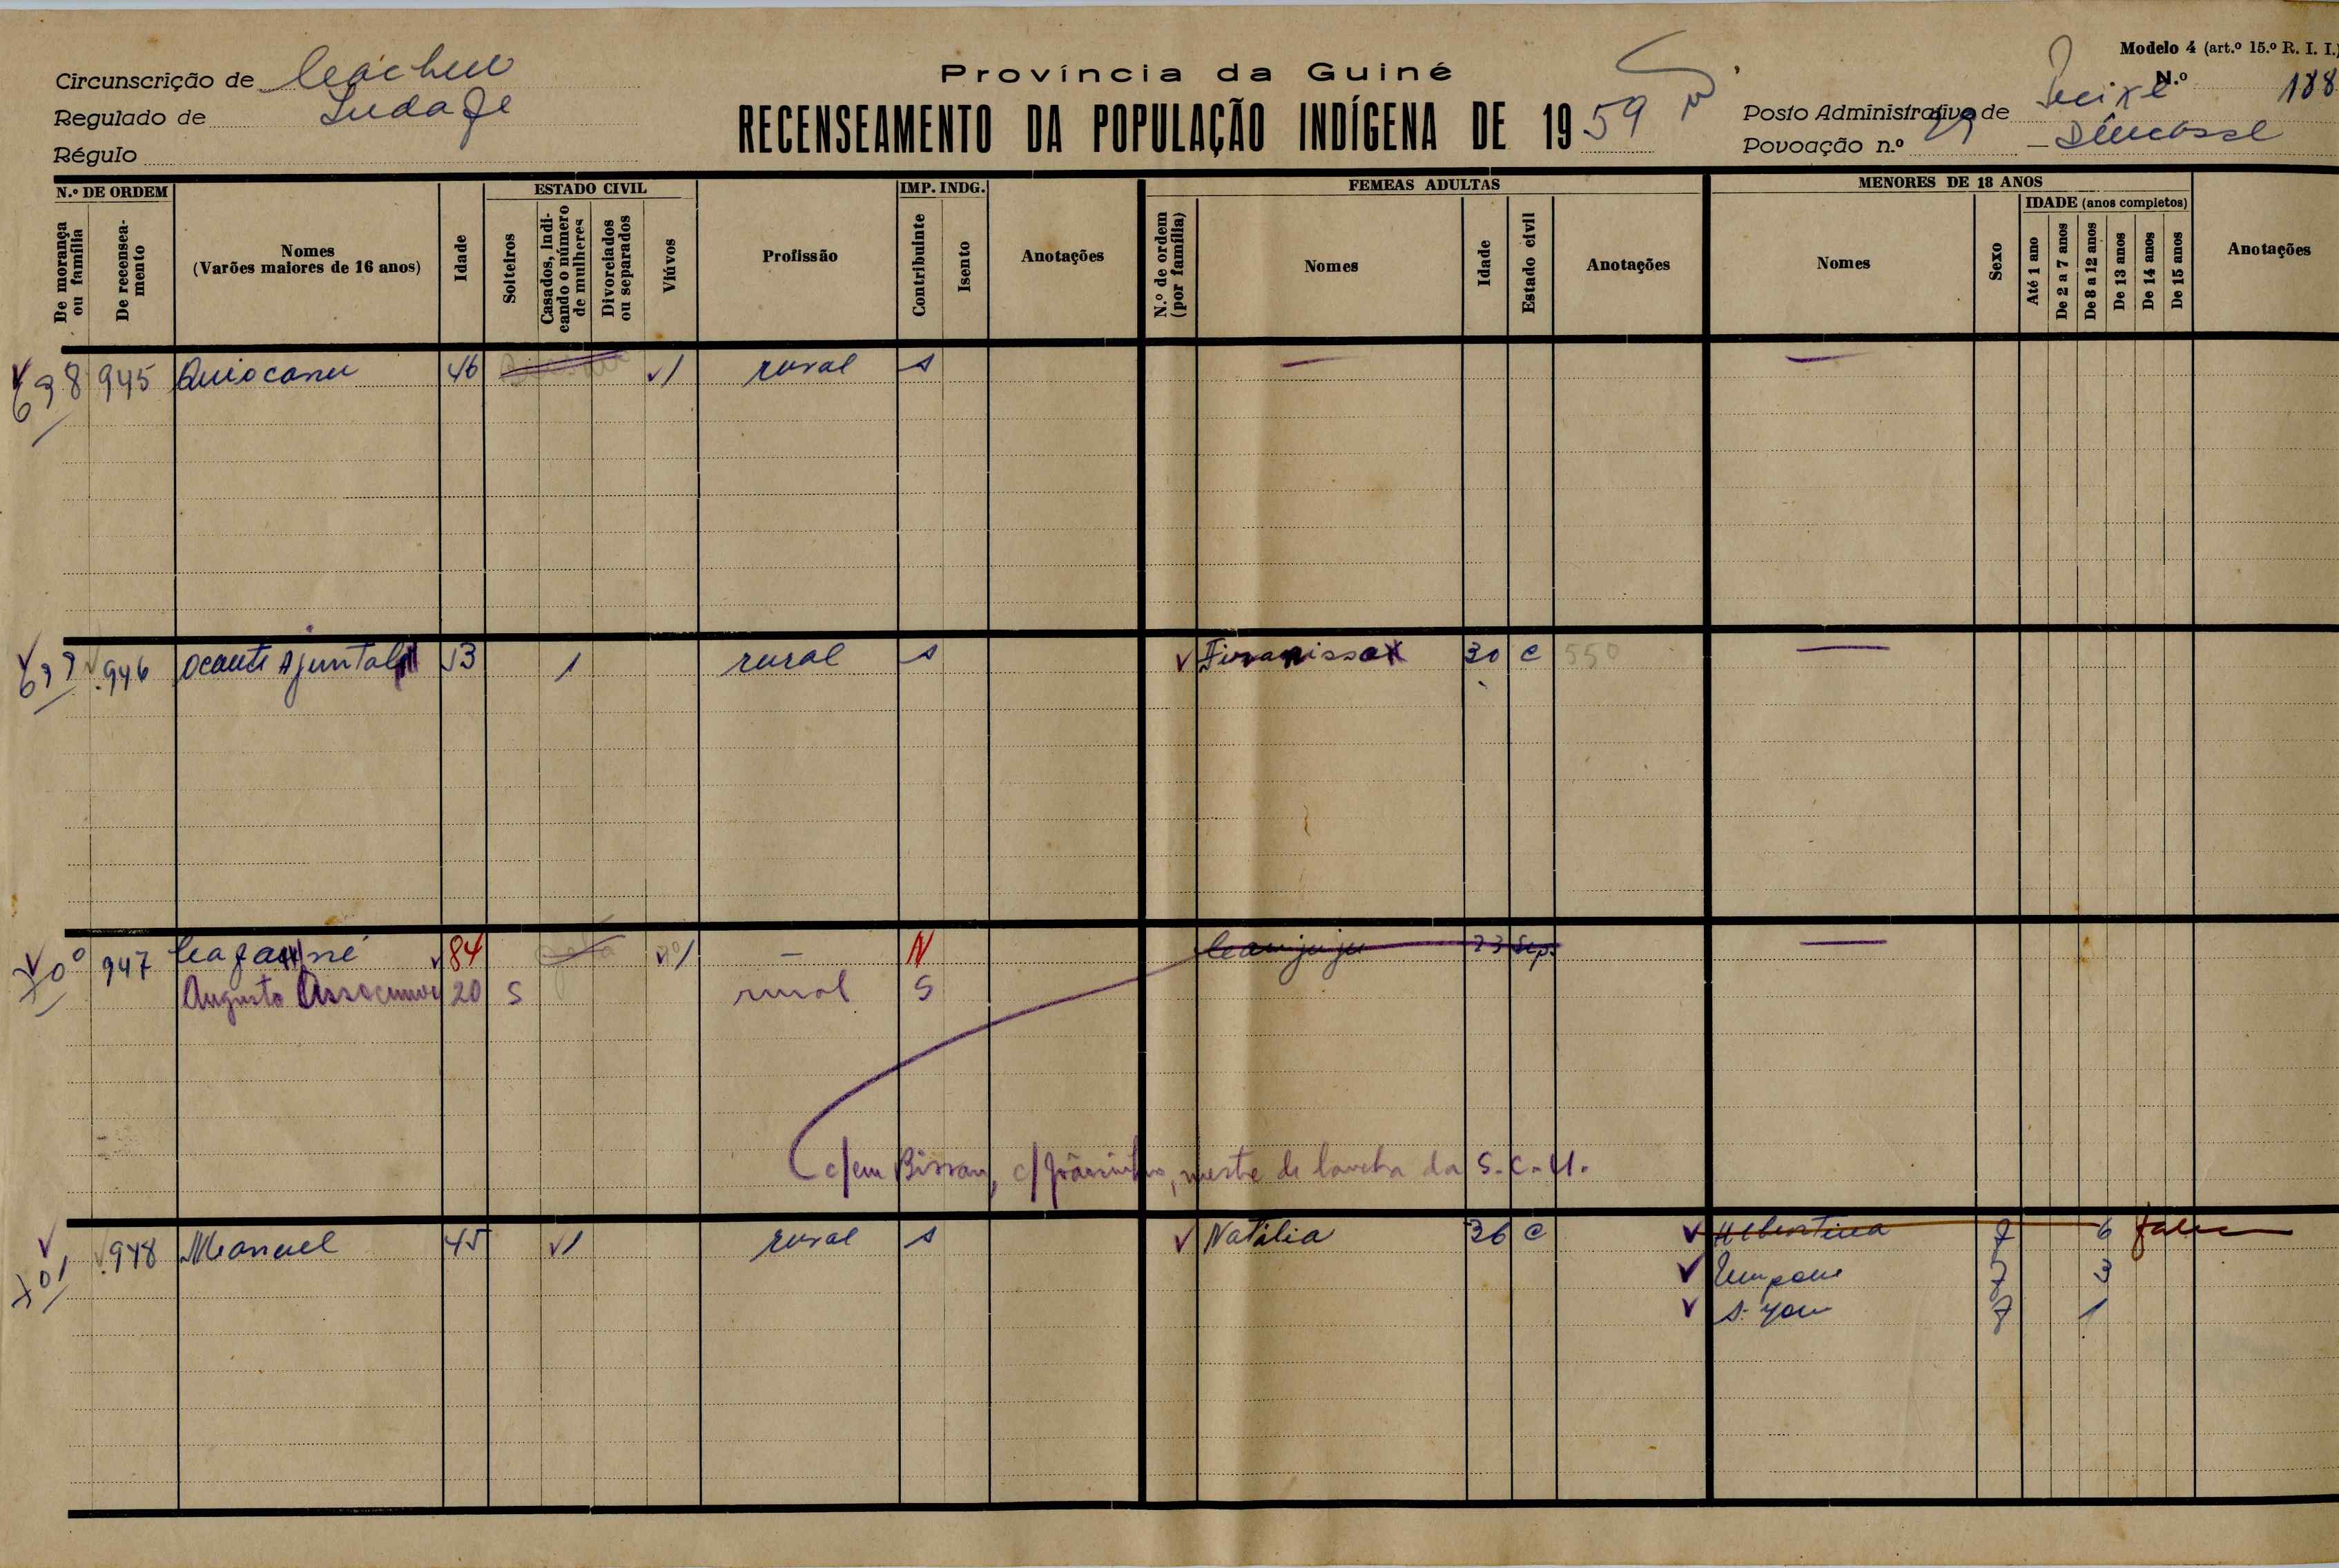 Modelo 4 (art.º 15.º R. I. I.)
Província da Guiné
Circunscrição de Cacheu
N.º 188
Regulado de
RECENSEAMENTO DA POPULAÇÃO INDÍGENA DE 1959
Posto Administrativo de
Régulo
Povoação n.º
N.º DE ORDEM
ESTADO CIVIL
IMP. INDG.
FEMEAS ADULTAS
MENORES DE 18 ANOS
De morança ou família
De recenseamento
Nomes (Varões maiores de 16 anos)
Idade
Solteiros
Casados, indicando o número de mulheres
Divorciados ou separados
Viúvos
Profissão
Contribuinte
Isento
Anotações
N.º de ordem (por família)
Nomes
Idade
Estado civil
Anotações
Nomes
Sexo
IDADE (anos completos)
Até 1 ano
De 2 a 7 anos
De 8 a 12 anos
De 13 anos
De 14 anos
De 15 anos
Anotações
698 945 46 1 rural s — —
946 53 1 rural s 30 C 550 —
700 947 84 1 — N 23 Sep. —
Augusto 20 S rural S
c/em Bissau, mestre de lancha da S. C. U.
701 948 Manuel 45 1 rural s Natália 36 C Albertina f 6
f 3
f 1